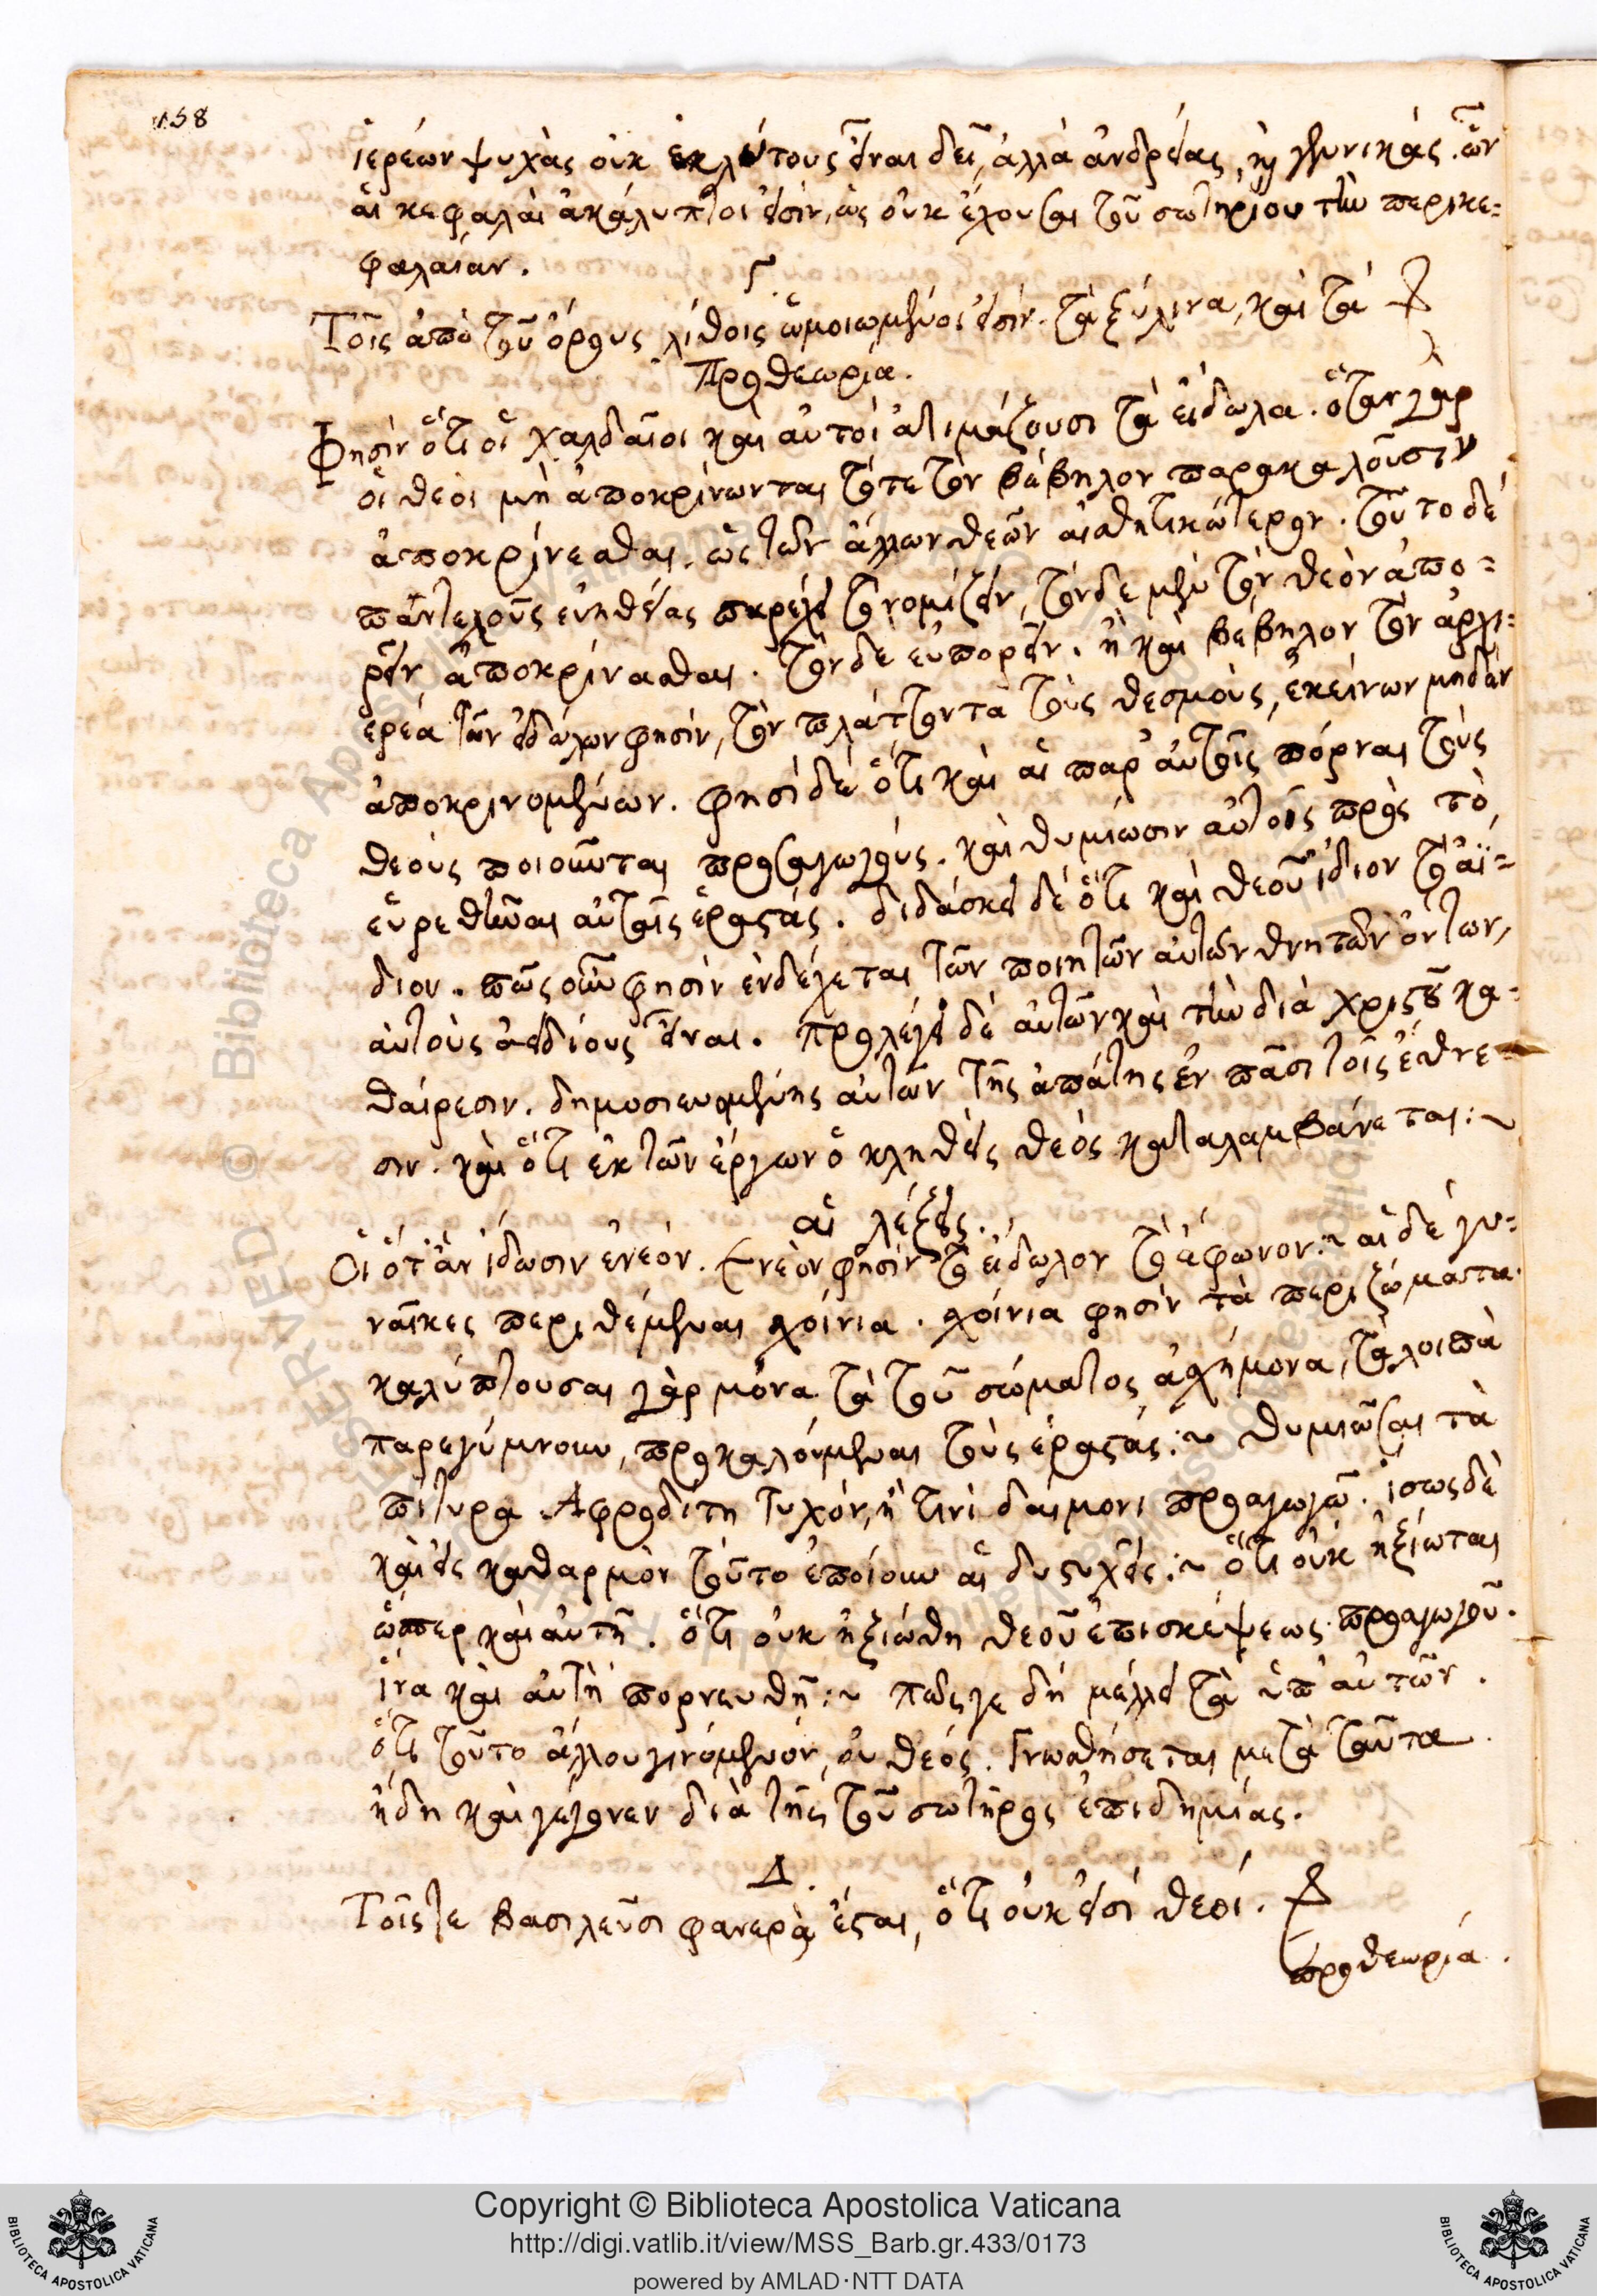 158
ἱερέων ψυχὰς οὐκ ἐκλύτους εἶναι δεῖ, ἀλλὰ ἀνδρείας, καὶ γεννικάς. ὧν
αἱ κεφαλαὶ ἀκάλυπτοι εἰσὶν, ὡς οὐκ ἔχουσαι τοῦ σωτηρίου τὴν περικε=
φαλαίαν.
Γ.
Τοῖς ἀπὸ τοῦ ὄρους λίθοις ὡμοιωμένοι εἰσίν. τὰ ξύλινα, καὶ τὰ
Προθεωρία.
Φησὶν ὅτι οἱ χαλδαῖοι καὶ αὐτοὶ ἀτιμάζουσι τὰ εἴδωλα. ὅταν γὰρ
οἱ θεοὶ μὴ ἀποκρίνωνται τότε τὸν βέβηλον παρακαλοῦσιν
ἀποκρίνεσθαι. ὡς τῶν ἄλλων θεῶν αἰσθητικώτερον. τοῦτο δὲ
παντελοῦς εὐηθείας παρέχει τὸ νομίζειν, τόνδε μὲν τὸν θεὸν ἀπο=
ρεῖν ἀποκρίνασθαι. τόνδε εὐπορεῖν. ἢ καὶ βέβηλον τὸν ἀρχι=
ερέα τῶν εἰδώλων φησίν, τὸν πλάττοντα τοὺς θεσμοὺς, ἐκείνων μηδὲν
ἀποκρινομένων. φησὶ δὲ ὅτι καὶ αἱ παρ' αὐτοῖς πόρναι τοὺς
θεοὺς ποιοῦνται προσαγωγούς. καὶ θυμιῶσιν αὐτοῖς πρὸς τὸ
εὑρεθῆναι αὐταῖς ἐραστάς. διδάσκει δὲ ὅτι καὶ θεοῦ ἴδιον τὸ ἀΐ=
διον. πῶς οὖν φησὶν ἐνδέχεται τῶν ποιητῶν αὐτῶν θνητῶν ὄντων,
αὐτοὺς ἀειδίους εἶναι. προλέγει δὲ αὐτῶν καὶ τὴν διὰ χριστοῦ κα=
θαίρεσιν. δημοσιευομένης αὐτῶν τῆς ἀπάτης ἐν πᾶσι τοῖς ἔθνε=
σιν. καὶ ὅτι ἐκ τῶν ἔργων ὁ κληθεὶς θεὸς καταλαμβάνεται:~
αἱ λέξεις.
Οἱ ὅταν ἴδωσιν ἐνεόν. ἐνεὸν φησὶν τὸ εἴδωλον τὸ ἄφωνον:~ αἱ δὲ γυ=
ναῖκες περιθέμεναι σχοίνια. σχοίνια φησὶν τὰ περιζώματα.
καλύπτουσαι γὰρ μόνα τὰ τοῦ σώματος ἀσχήμονα, τὰ λοιπὰ
παρεγύμνουν, προκαλούμεναι τοὺς ἐραστάς:~ θυμιῶσαι τὰ
πίτυρα. Ἀφροδίτη τυχόν, ἤ τινι δαίμονι προαγωγῷ. ἴσως δὲ
καὶ εἰς καθαρμὸν τοῦτο ἐποίουν αἱ δυστυχεῖς:~ ὅτι οὐκ ἠξίωται
ὥσπερ καὶ αὐτή. ὅτι οὐκ ἠξιώθη θεοῦ ἐπισκέψεως προαγωγοῦ.
ἵνα καὶ αὐτὴ πορνευθῇ:~ πῶς γε δὴ μέλλει τὰ ὑπ' αὐτῶν.
ὅτι τοῦτο ἄλλου γινόμενον, οὐ θεός. Γνωσθήσεται μετὰ ταῦτα.
ἤδη καὶ γέγονεν διὰ τῆς τοῦ σωτῆρος ἐπιδημίας.
Δ.
Τοῖς τε βασιλεῦσι φανερὰ ἔσται, ὅτι οὐκ εἰσὶ θεοί.
προθεωρία.
Copyright © Biblioteca Apostolica Vaticana
http://digi.vatlib.it/view/MSS_Barb.gr.433/0173
powered by AMLAD·NTT DATA
BIBLIOTECA APOSTOLICA VATICANA
BIBLIOTECA APOSTOLICA VATICANA